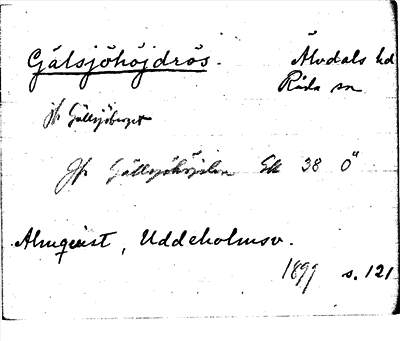 Gälsjöhöjdrös. Älvdals hd
Råda sn
jfr Gällsjöberget
Jfr Gällsjöhöjden Ek 38 Ö
Almqvist, Uddeholmsv.
1899 s. 121